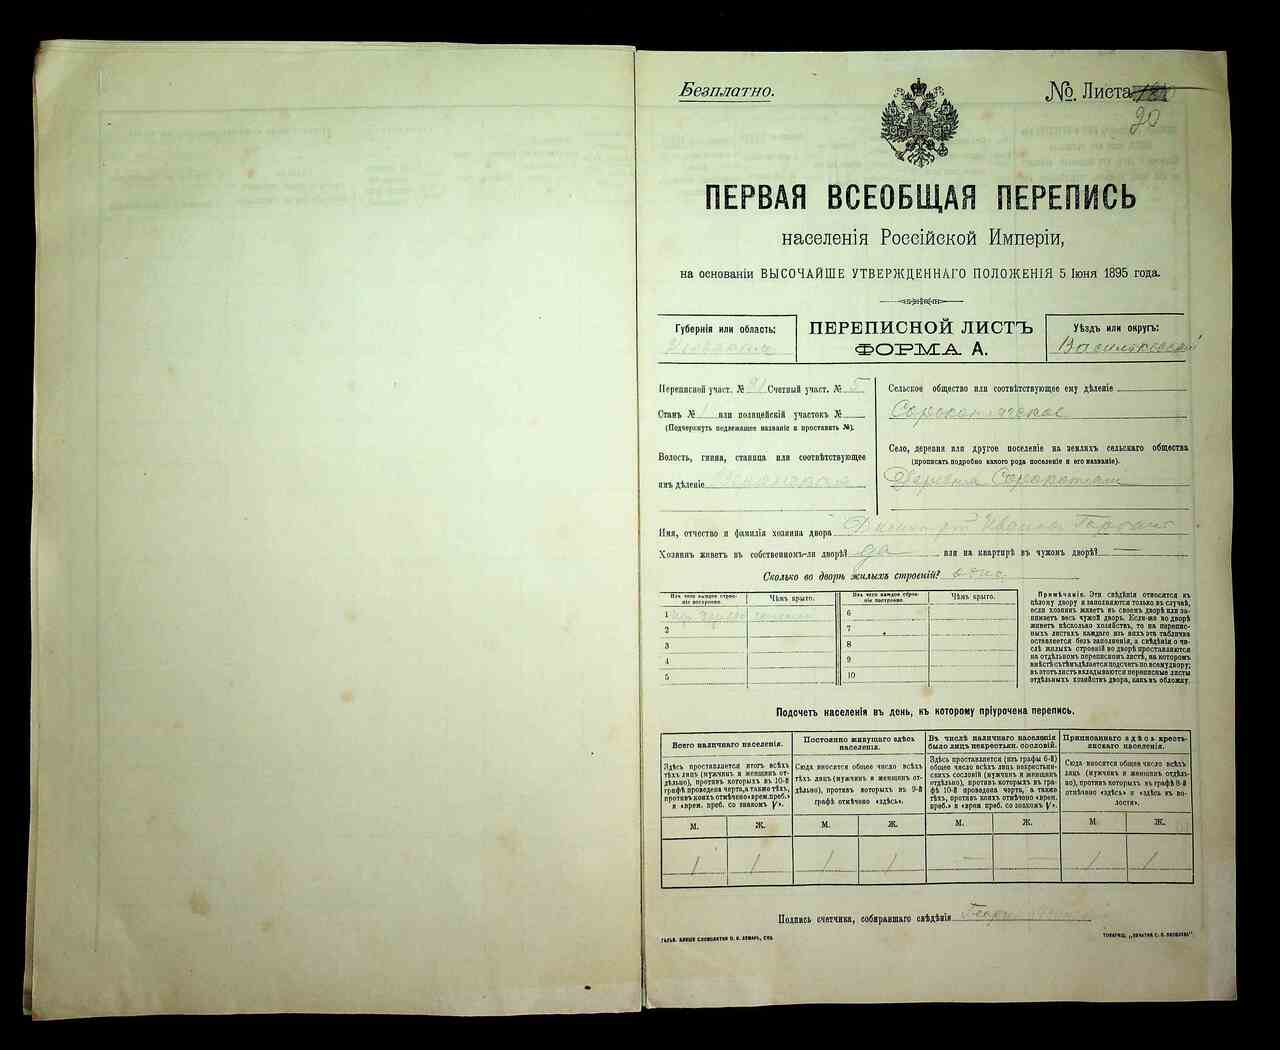 Безплатно.
№. Листа
20
ПЕРВАЯ ВСЕОБЩАЯ ПЕРЕПИСЬ
населенія Россійской Имперіи,
на основаніи ВЫСОЧАЙШЕ УТВЕРЖДЕННАГО ПОЛОЖЕНІЯ 5 Іюня 1895 года.
Губернія или область:
Кіевская
ПЕРЕПИСНОЙ ЛИСТЪ
ФОРМА А.
Уѣздъ или округъ:
Васильковскій
Переписной участ. № 91 Счетный участ. № 5
Станъ № 1 или полицейскій участокъ №
(Подчеркнуть подлежащее названіе и проставить №).
Волость, гмина, станица или соотвѣтствующее
имъ дѣленіе
Сельское общество или соотвѣтствующее ему дѣленіе
Сорокотяжское
Село, деревня или другое поселеніе на земляхъ сельскаго общества
(прописать подробно какого рода поселеніе и его названіе).
Деревня Сорокотяги
Имя, отчество и фамилія хозяина двора Ивановъ
Хозяинъ живетъ въ собственномъ-ли дворѣ? да или на квартирѣ въ чужомъ дворѣ? —
Сколько во дворѣ жилыхъ строеній? одно
Изъ чего каждое строеніе построено.
Чѣмъ крыто.
Изъ чего каждое строеніе построено.
Чѣмъ крыто.
1 изъ дерева соломою
2
3
4
5
6
7
8
9
10
Примѣчаніе. Эти свѣдѣнія относятся къ
цѣлому двору и заполняются только въ случаѣ,
если хозяинъ живетъ въ своемъ дворѣ или за-
нимаетъ весь чужой дворъ. Если-же во дворѣ
живетъ нѣсколько хозяйствъ, то на перепис-
ныхъ листахъ каждаго изъ нихъ эта табличка
оставляется безъ заполненія, а свѣдѣнія о чи-
слѣ жилыхъ строеній во дворѣ проставляются
на отдѣльномъ переписномъ листѣ, на которомъ
вмѣстѣ съ тѣмъ дѣлается подсчетъ по всему двору;
въ этотъ листъ вкладываются переписные листы
отдѣльныхъ хозяйствъ двора, какъ въ обложку.
Подсчетъ населенія въ день, къ которому пріурочена перепись.
Всего наличнаго населенія.
Здѣсь проставляется итогъ всѣхъ
тѣхъ лицъ (мужчинъ и женщинъ от-
дѣльно), противъ которыхъ въ 10-й
графѣ проведена черта, а также тѣхъ,
противъ коихъ отмѣчено «врем. преб.»
и «врем. преб. со знакомъ V».
Постоянно живущаго здѣсь
населенія.
Сюда вносится общее число всѣхъ
тѣхъ лицъ (мужчинъ и женщинъ от-
дѣльно), противъ которыхъ въ 9-й
графѣ отмѣчено «здѣсь».
Въ числѣ наличнаго населенія
было лицъ некрестьян. сословій.
Здѣсь проставляется (изъ графы 6-й)
общее число всѣхъ лицъ некрестьян-
скихъ сословій (мужчинъ и женщинъ
отдѣльно), противъ которыхъ въ гра-
фѣ 10-й проведена черта, а также
тѣхъ, противъ коихъ отмѣчено «врем.
преб.» и «врем. преб. со знакомъ V».
Приписаннаго здѣсь кресть-
янскаго населенія.
Сюда вносится общее число всѣхъ
лицъ (мужчинъ и женщинъ отдѣль-
но), противъ которыхъ въ графѣ 8-й
отмѣчено «здѣсь» и «здѣсь въ во-
лости».
М. Ж. М. Ж. М. Ж. М. Ж.
1 1 1 1 — — 1 1
Подпись счетчика, собиравшаго свѣдѣнія
ТОВАРИЩ. „ПЕЧАТНЯ С. П. ЯКОВЛЕВА".